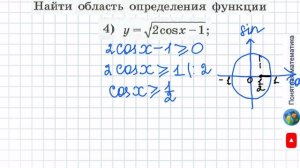 Найти область определения функции
4) y = √2cosx − 1;
2cosx − 1 ≥ 0
2cosx ≥ 1 |: 2
cosx ≥ 1/2
sin
-1 0 1/2 1
Понятная Математика